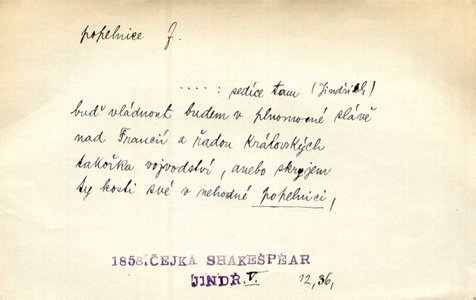 popelnice f.
....: sedíce tam (Jindřich)
buď vládnout budem v plnomocné slávě
nad Francií a řadou královských
takořka vojvodství, anebo skryjem
ty kosti své v nehodné popelnici,
1858.ČEJKA SHAKESPEAR
JINDŘ.V. 12,36,